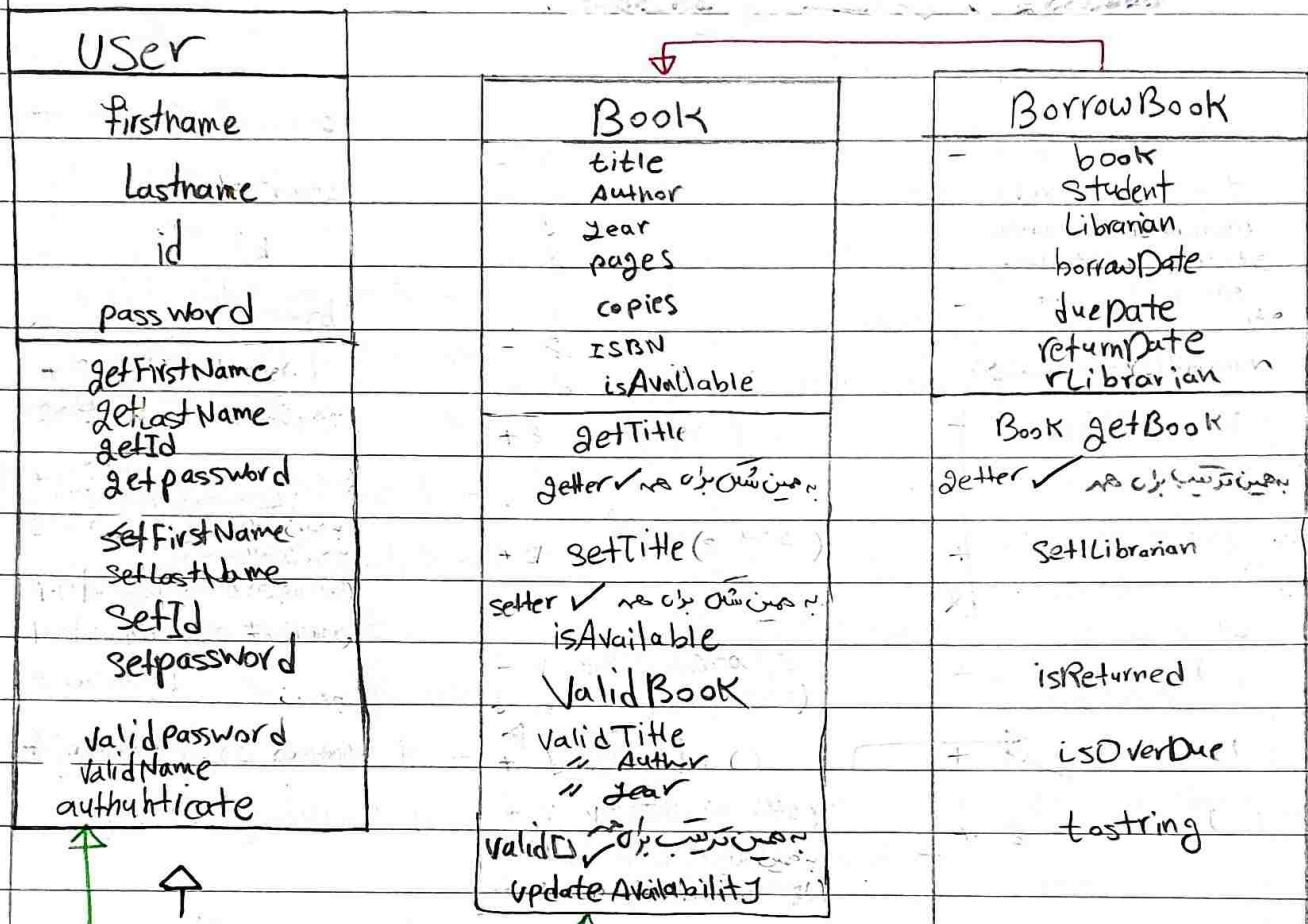 User
firstname
Lastname
id
password
- getFirstName
getLastName
getId
getpassword
setFirstName
setLastName
SetId
Setpassword
validpassword
ValidName
authuhticate
Book
title
Author
year
pages
copies
- ISBN
isAvailable
+ getTitle
getter ✓ به همین شکل برای همه
+ setTitle( )
setter ✓ به همین شکل برای همه
isAvailable
ValidBook
- ValidTitle
+ " Author
" year
valid□ ✓ به همین ترتیب برای همه
update Availability
BorrowBook
- book
Student
Librarian
borrowDate
- dueDate
returnDate
rLibrarian
- Book getBook
getter ✓ به همین ترتیب برای همه
+ SetlLibrarian
isReturned
+ isOverDue
tostring